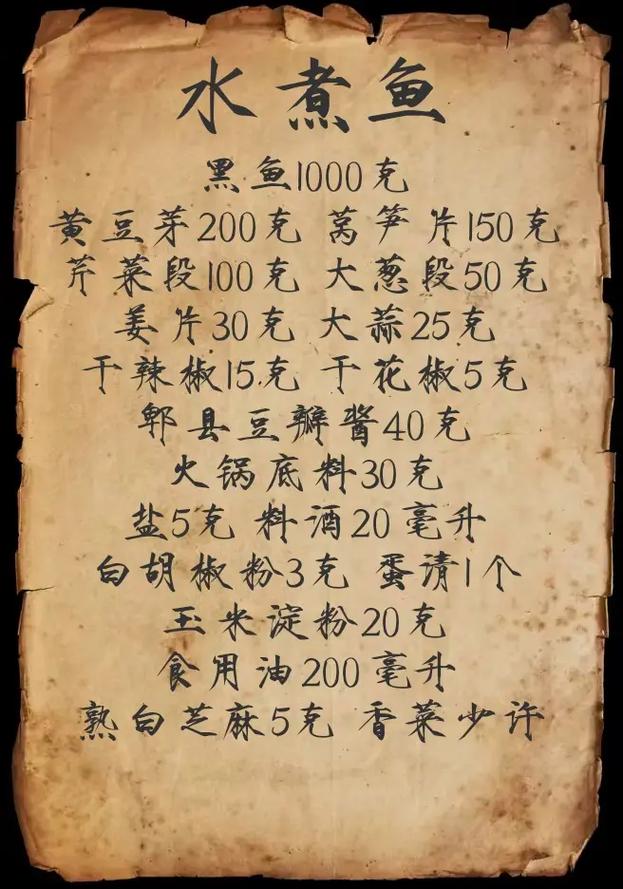 水煮鱼
黑鱼1000克
黄豆芽200克 莴笋片150克
芹菜段100克 大葱段50克
姜片30克 大蒜25克
干辣椒15克 干花椒5克
郫县豆瓣酱40克
火锅底料30克
盐5克 料酒20毫升
白胡椒粉3克 蛋清1个
玉米淀粉20克
食用油200毫升
熟白芝麻5克 香菜少许